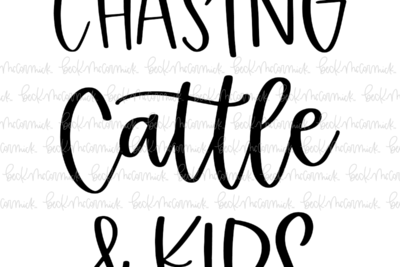 CHASING
Cattle
& KIDS